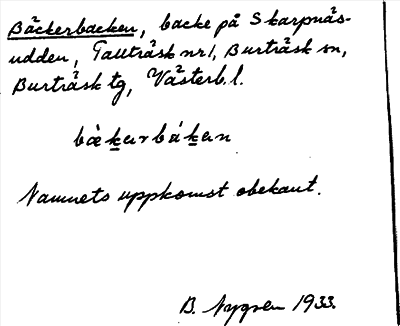 Bäckerbacken, backe på Skarpnäs-
udden, Tallträsk nr 1, Burträsk sn,
Burträsk tg, Västerb. l.
bäkarbákan
Namnets uppkomst obekant.
B. Nygren 1933.